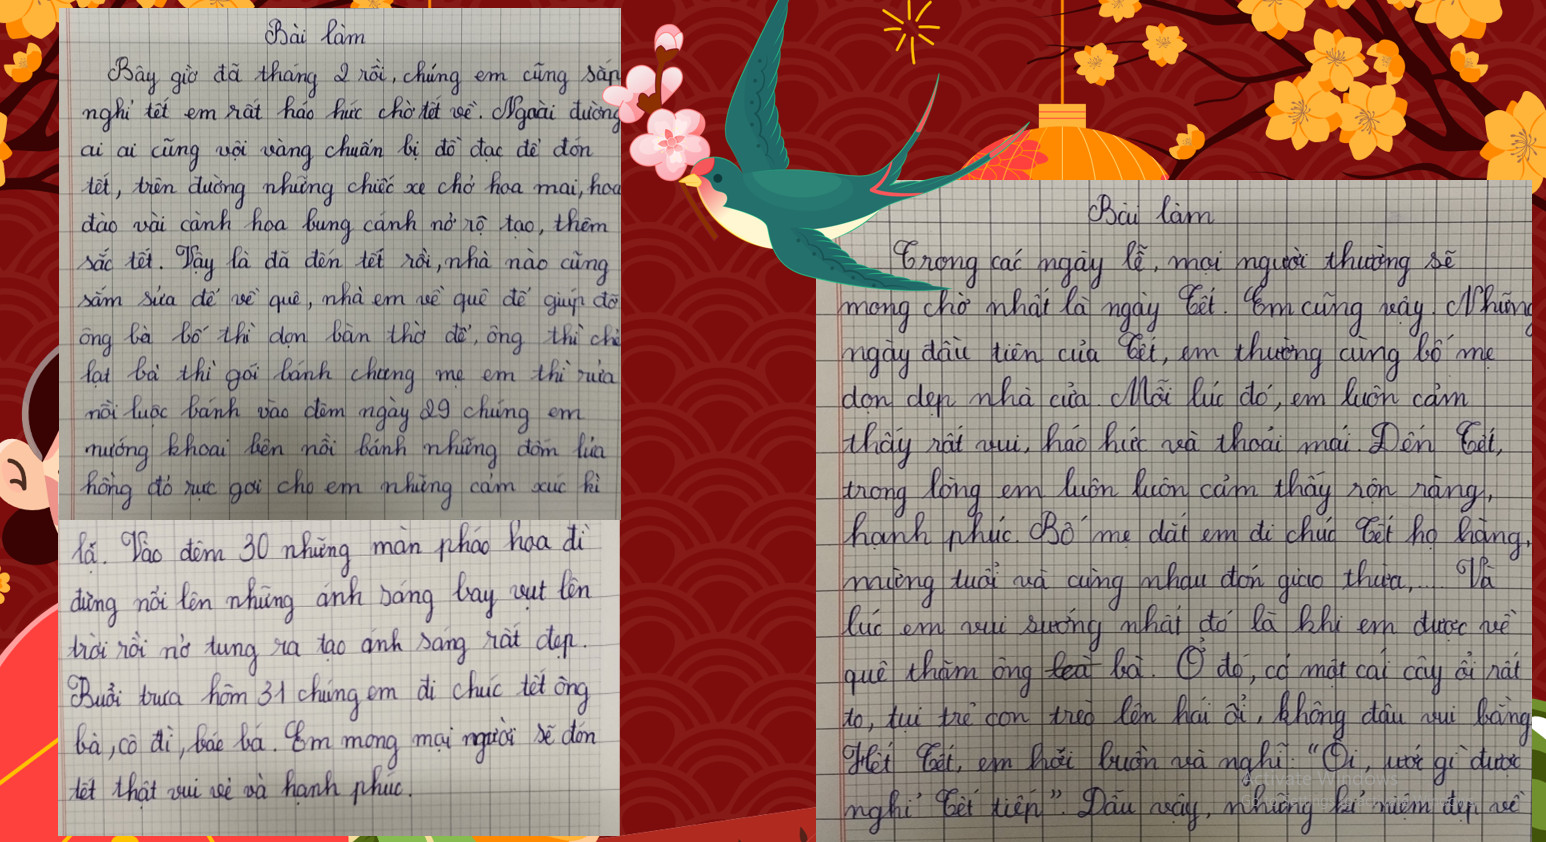 Bài làm
Bây giờ đã tháng 2 rồi, chúng em cũng sắp
nghỉ tết em rất háo hức chờ tết về. Ngoài đường
ai ai cũng vội vàng chuẩn bị đồ đạc để đón
tết, trên đường những chiếc xe chở hoa mai, hoa
đào vài cành hoa bung cánh nở rộ tạo, thêm
sắc tết. Vậy là đã đến tết rồi, nhà nào cũng
sắm sửa để về quê, nhà em về quê để giúp đỡ
ông bà bố thì dọn bàn thờ để, ông thì chẻ
lạt bà thì gói bánh chưng mẹ em thì rửa
nồi luộc bánh vào đêm ngày 29 chúng em
nướng khoai bên nồi bánh những đốm lửa
hồng đỏ rực gợi cho em những cảm xúc kì
lạ. Vào đêm 30 những màn pháo hoa đì
đùng nổi lên những ánh sáng bay vụt lên
trời rồi nở tung ra tạo ánh sáng rất đẹp.
Buổi trưa hôm 31 chúng em đi chúc tết ông
bà, cô dì, bác bá. Em mong mọi người sẽ đón
tết thật vui vẻ và hạnh phúc.
Bài làm
Trong các ngày lễ, mọi người thường sẽ
mong chờ nhất là ngày Tết. Em cũng vậy. Những
ngày đầu tiên của Tết, em thường cùng bố mẹ
dọn dẹp nhà cửa. Mỗi lúc đó, em luôn cảm
thấy rất vui, háo hức và thoải mái. Đến Tết,
trong lòng em luôn luôn cảm thấy rộn ràng,
hạnh phúc. Bố mẹ dắt em đi chúc Tết họ hàng,
mừng tuổi và cùng nhau đón giao thừa,.... Và
lúc em vui sướng nhất đó là khi em được về
quê thăm ông bà. Ở đó, có một cái cây ổi rất
to, tụi trẻ con trèo lên hái ổi, không đâu vui bằng
Hết Tết, em hơi buồn và nghĩ: "Ôi, ước gì được
nghỉ Tết tiếp". Dẫu vậy, những kỉ niệm đẹp về
Activate Windows